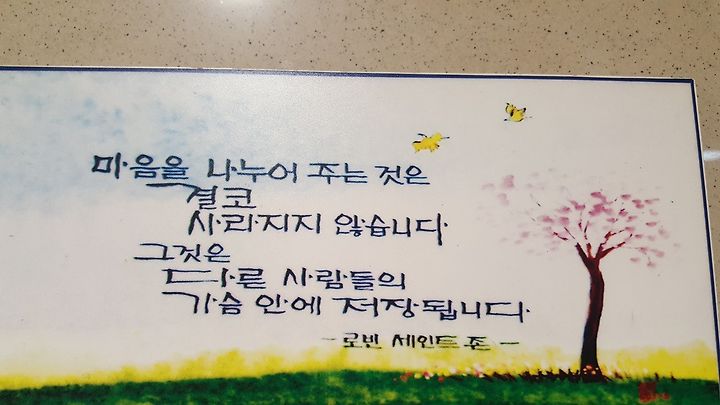 마음을 나누어 주는 것은
결코
사라지지 않습니다
그것은
다른 사람들의
가슴 안에 저장됩니다.
- 로빈 세인트 존 -